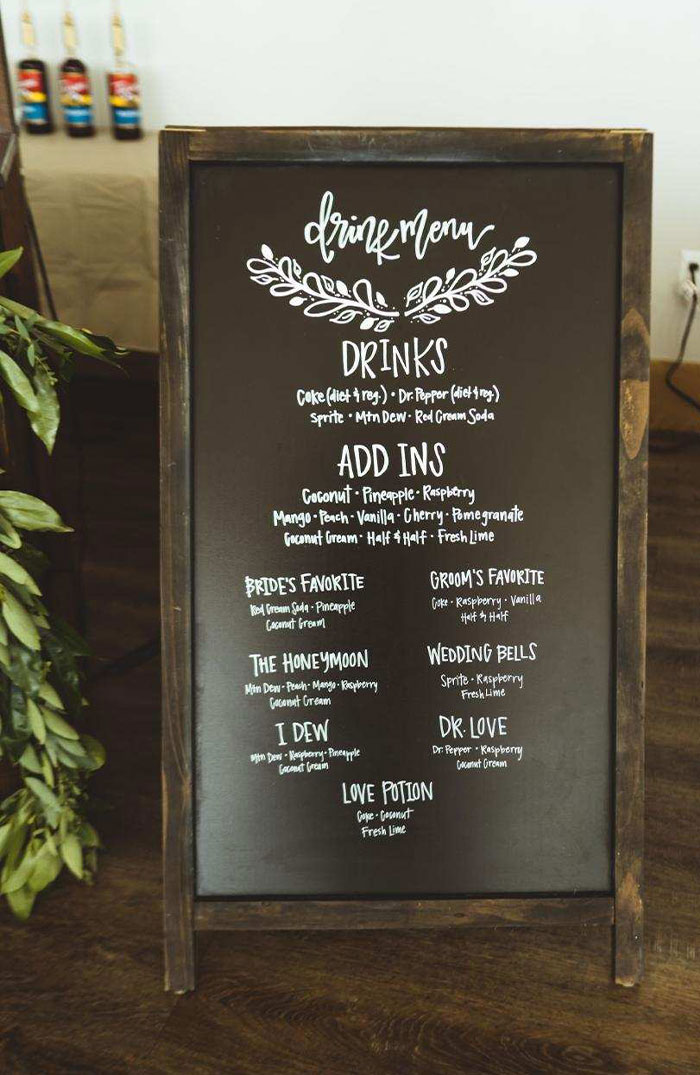 drink menu
DRINKS
Coke (diet & reg.) • Dr. Pepper (diet & reg.)
Sprite • Mtn Dew • Red Cream Soda
ADD INS
Coconut • Pineapple • Raspberry
Mango • Peach • Vanilla • Cherry • Pomegranate
Coconut Cream • Half & Half • Fresh Lime
BRIDE'S FAVORITE
Red Cream Soda • Pineapple
Coconut Cream
GROOM'S FAVORITE
Coke • Raspberry • Vanilla
Half & Half
THE HONEYMOON
Mtn Dew • Peach • Mango • Raspberry
Coconut Cream
WEDDING BELLS
Sprite • Raspberry
Fresh Lime
I DEW
Mtn Dew • Raspberry • Pineapple
Coconut Cream
DR. LOVE
Dr. Pepper • Raspberry
Coconut Cream
LOVE POTION
Coke • Coconut
Fresh Lime